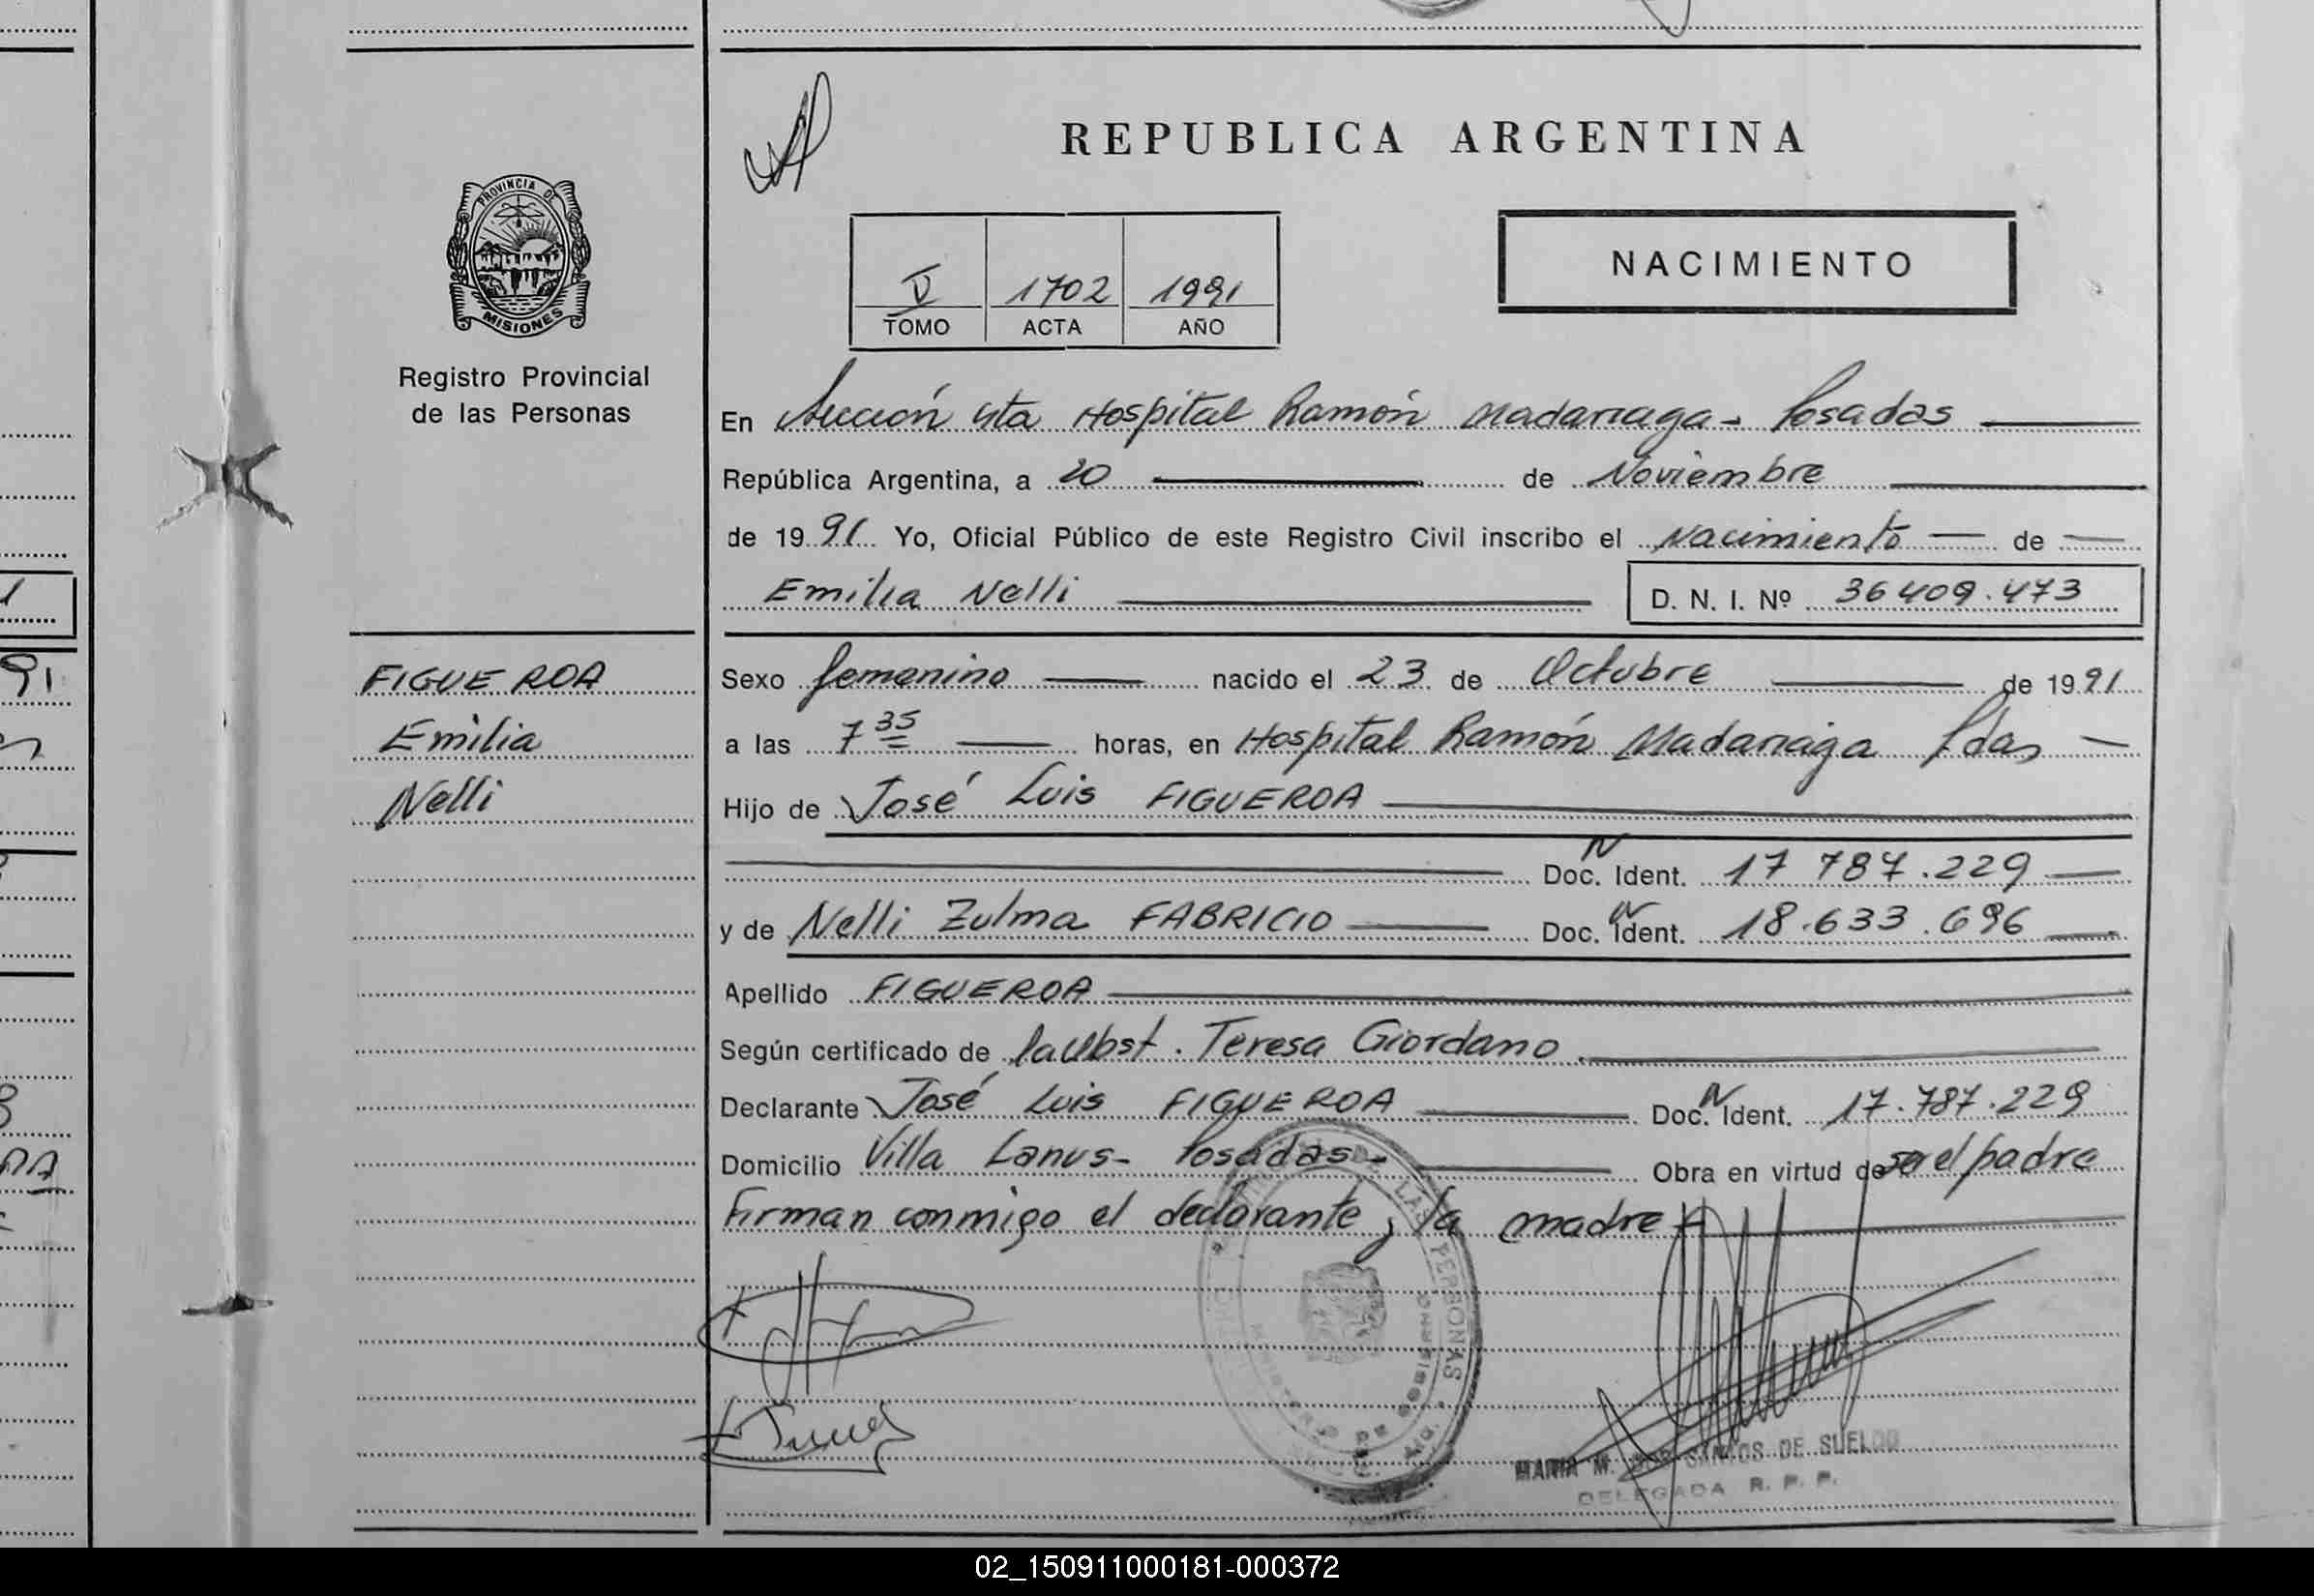 REPUBLICA ARGENTINA
PROVINCIA DE
MISIONES
Registro Provincial
de las Personas
V 1702 1991
TOMO ACTA AÑO
NACIMIENTO
En Sección 4ta Hospital Ramón Madariaga - Posadas
República Argentina, a 20 de Noviembre
de 1991 Yo, Oficial Público de este Registro Civil inscribo el Nacimiento de
Emilia Nelli D. N. I. Nº 36409.473
FIGUEROA
Emilia
Nelli
Sexo femenino nacido el 23 de Octubre de 1991
a las 7 35 horas, en Hospital Ramón Madariaga Pdas
Hijo de José Luis FIGUEROA
Doc. N Ident. 17 787.229
y de Nelli Zulma FABRICIO Doc. N Ident. 18.633.696
Apellido FIGUEROA
Según certificado de Teresa Giordano
Declarante José Luis FIGUEROA Doc. N Ident. 17.787.229
Domicilio Villa Lanus - Posadas - Obra en virtud de ser el padre
Firman conmigo el declarante y la madre
LAS PERSONAS
MINISTERIO DE GOBIERNO
MARIA M. DOS SANTOS DE SUELDO
DELEGADA R. P. P.
02_150911000181-000372